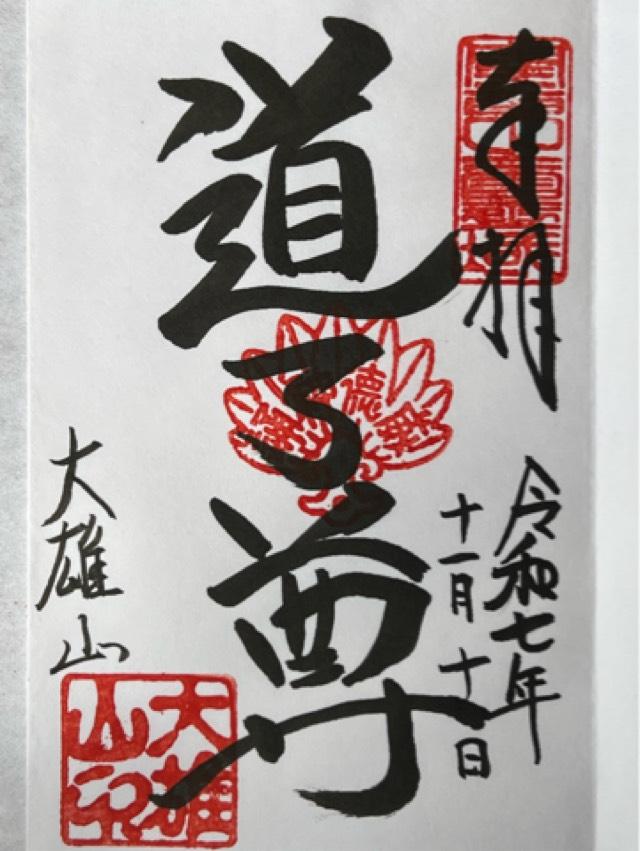 奉拝
令和七年
十一月十日
道了尊
大雄山
大雄山印